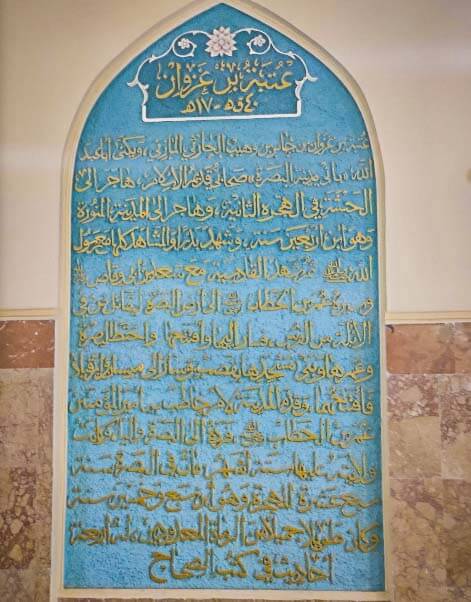 عتبة بن غزوان
٤٠ق ه - ١٧ه
عتبة بن غزوان بن جابر بن وهيب الحارثي المازني، ويكنى أبا عبد
الله باني مدينة البصرة، صحابي قديم الإسلام، هاجر إلى
الحبشة في الهجرة الثانية، وهاجر إلى المدينة المنورة
وهو ابن أربعين سنة، وشهد بدرا والمشاهد كلها مع رسول
الله ﷺ شهد القادسية مع سعد بن أبي وقاص
وسيره عمر بن الخطاب إلى أرض البصرة ليقاتل من في
الأبلة من الفرس، فسار إليها وافتتحها واختط البصرة
وعمرها وبنى مسجدها بقصب وسار إلى ميسان
فافتتحها المدينة أمير المؤمنين
عمر بن الخطاب فرده إلى البصرة واليا وكانت
ولايته عليها ستة أشهر، مات في البصرة سنة
سبع عشرة للهجرة وهو ابن سبع وخمسين سنة
وكان طويلا جميلا من الرماة المعدودين، له أربعة
أحاديث في كتب الصحاح